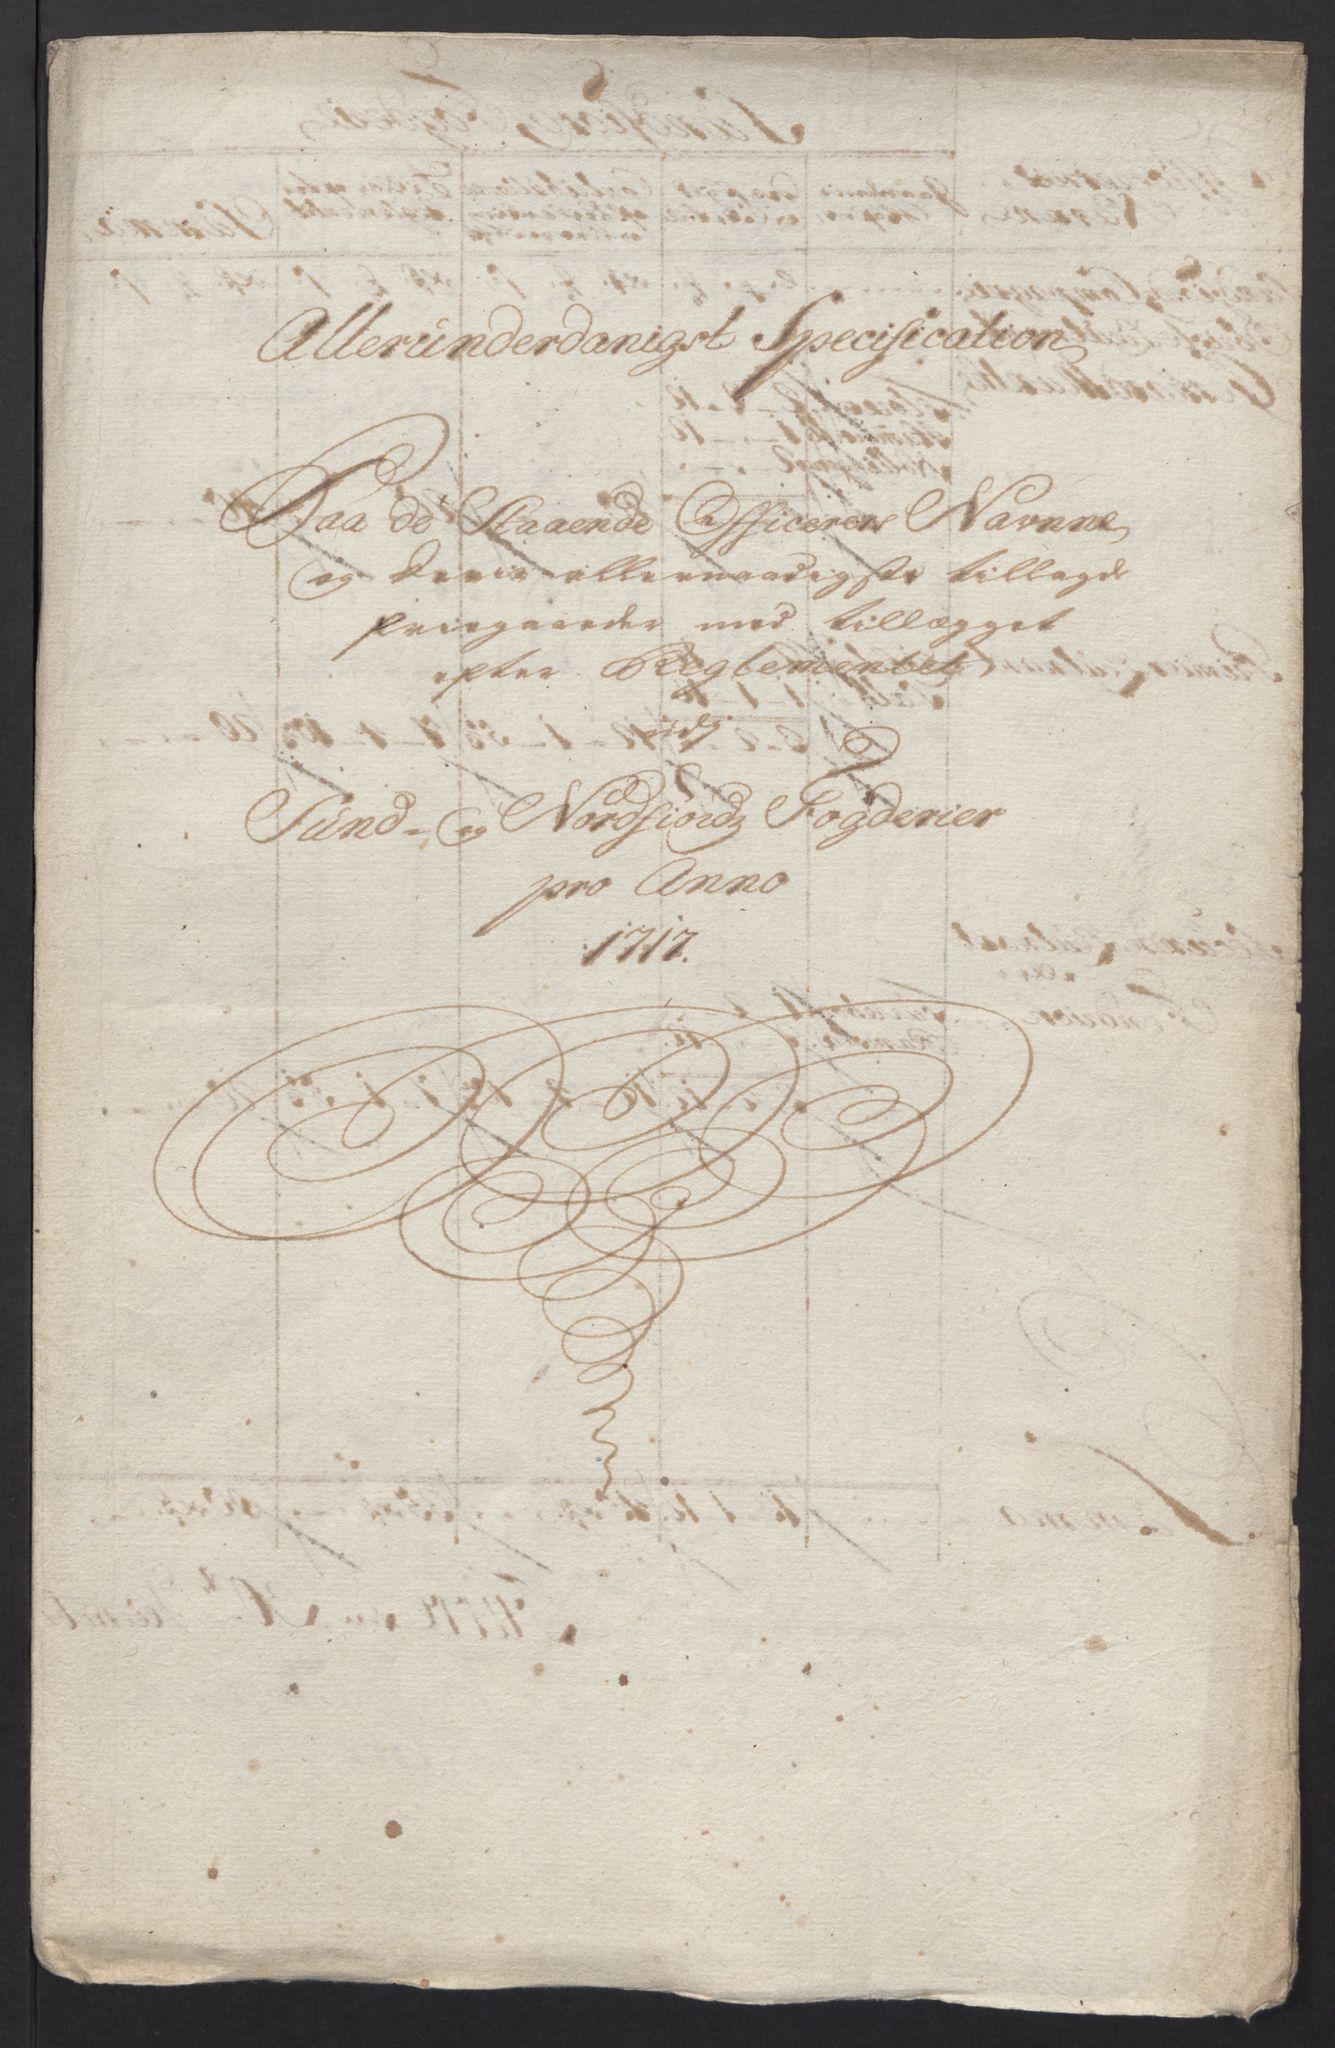 Alleründerdanigst Specification
Paa de Staaende Officerers Navnne
og deris allernaadigste tillagde
friegaarder med tillegget
efter Reglementet
udj
Sünd- og Nordfiordz Fogderier
pro Anno
1717.